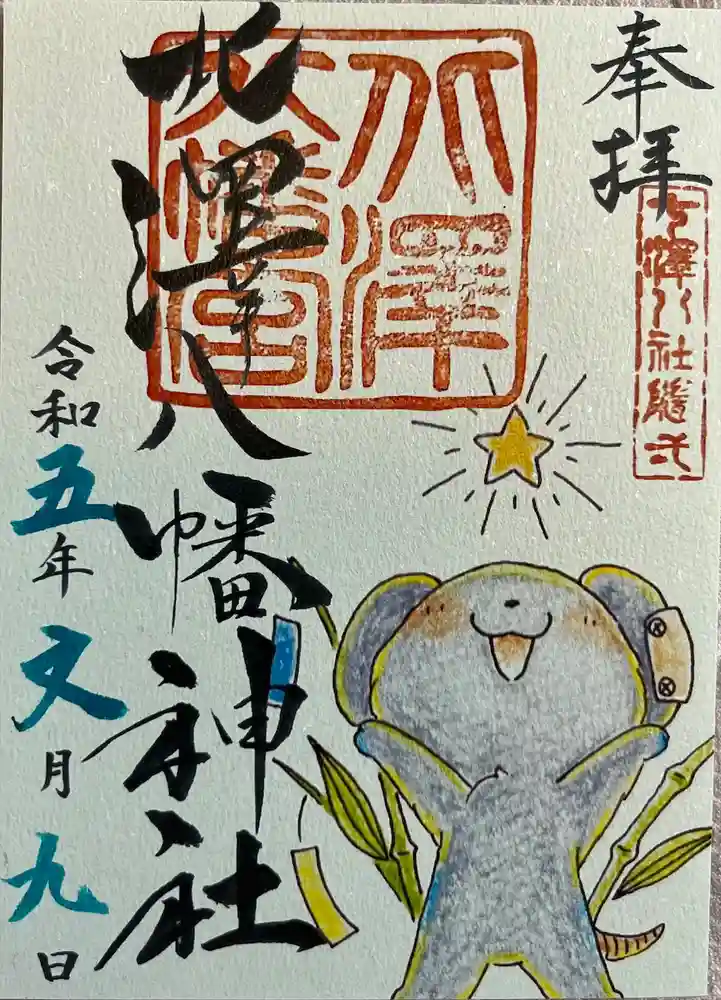 奉拝
七澤八社隨弌
北澤
八幡宮
北澤八幡神社
令和五年文月九日